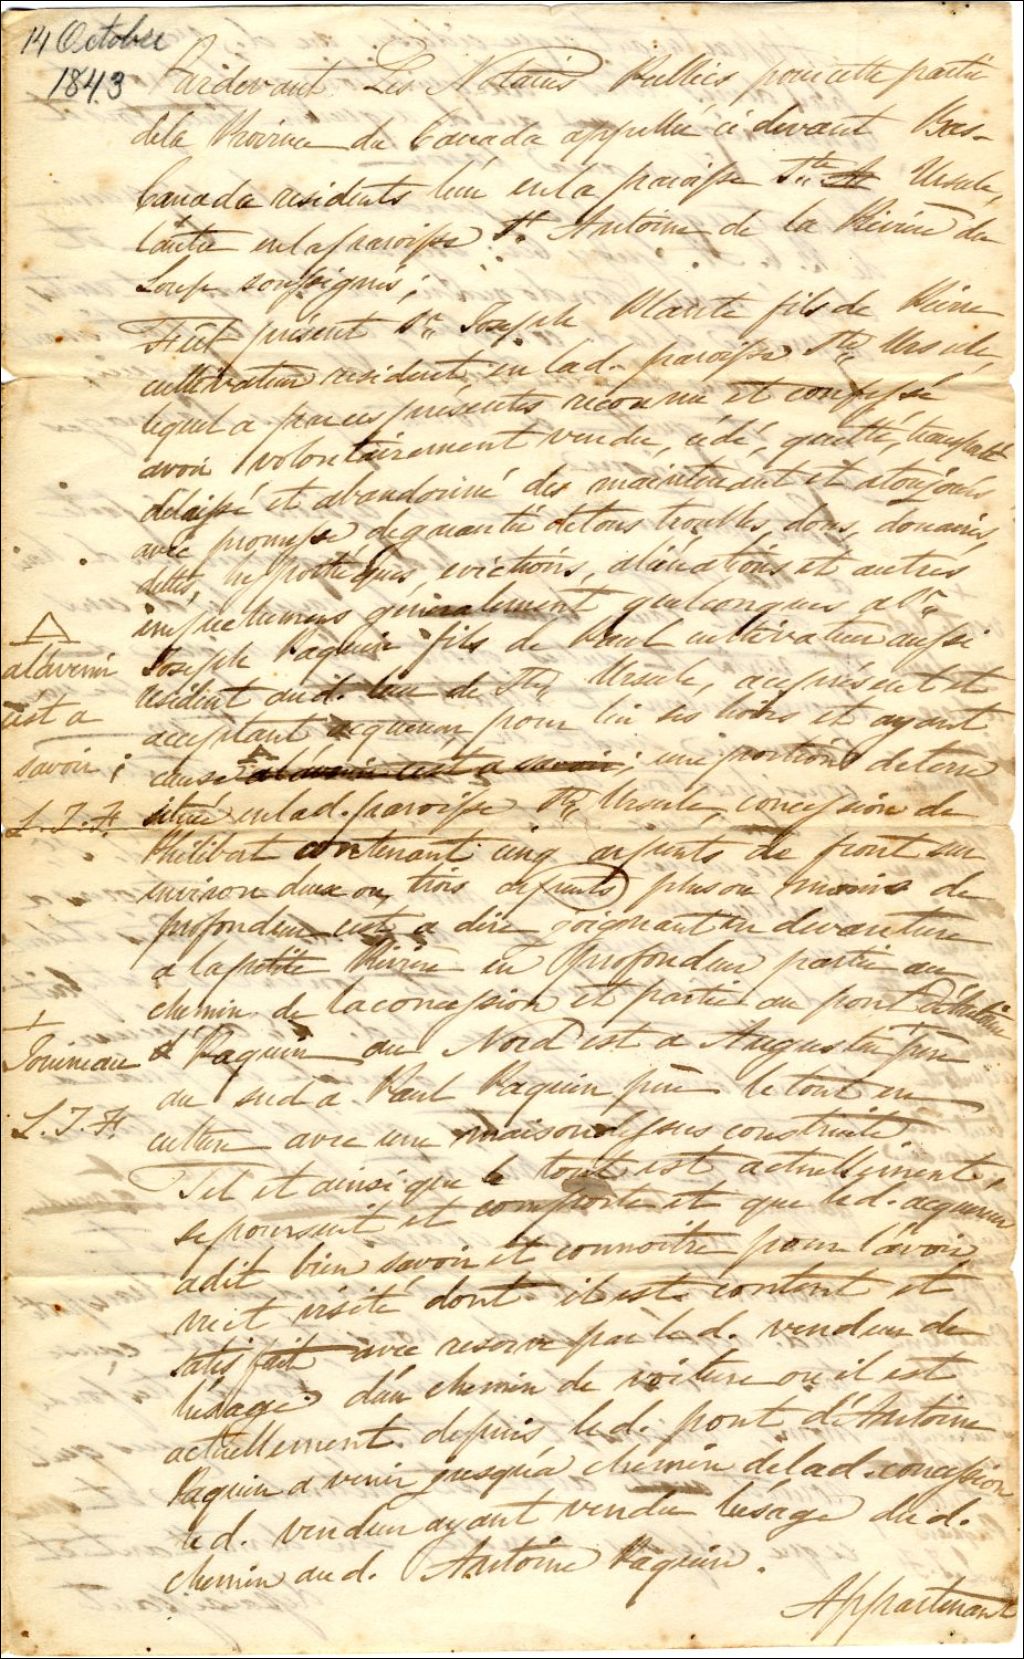 14 Octobre
1843
Pardevant Les Notaires Publics pour cette partie
dela Province du Canada appellé ci devant Bas-
Canada residents l'un en la paroisse Ste Ursule,
l'autre en la paroisse St Antoine de la Rivière du
Loup soussignés;
Fût présent Sr Joseph Plante fils de Pierre
cultivateur resident en lad. paroisse Ste Ursule,
lequel a par ces présentes reconnu et confessé
avoir volontairement vendu, cédé, quitté, transporté
délaissé et abandonné dès maintenant et atoujours
avec promesse de garantie detous troubles, dons, douaires,
dettes, hypothéques, evictions, aliénations et autres
empêchemens généralement quelconques a Sr
Joseph Paquin fils de Paul cultivateur aussi
résident aud. lieu de Ste Ursule, aceprésent et
acceptant acquereur pour lui ses hoirs et ayant
cause al'avenir c'est a savoir; une portion de terre
située en lad. paroisse Ste Ursule, concession de
Philibert contenant cinq arpents de front sur
environ deux ou trois arpents plus ou moins de
profondeur c'est a dire joignant en devanture
a la petite Rivière en profondeur partie au
chemin de la concession et partie au pont d'Antoine
Paquin au Nord est a Augustin père
au sud a Paul Paquin père le tout en
culture avec une maison dessus construite.
Tel et ainsi que le tout est actuellement,
se poursuit et comporte et que led. acquereur
a dit bien savoir et connoitre pour l'avoir
vu et visité dont il est content et
satisfait avec reserve par led. vendeur de
l'usage d'un chemin de voiture ou il est
actuellement depuis led. pont d'Antoine
Paquin a venir jusqu'a chemin delad. concession
led. vendeur ayant vendu l'usage dud.
chemin aud. Antoine Paquin.
Appartenant
al'avenir
c'est a
savoir;
L.J.F.
Jouineau
L.J.F.